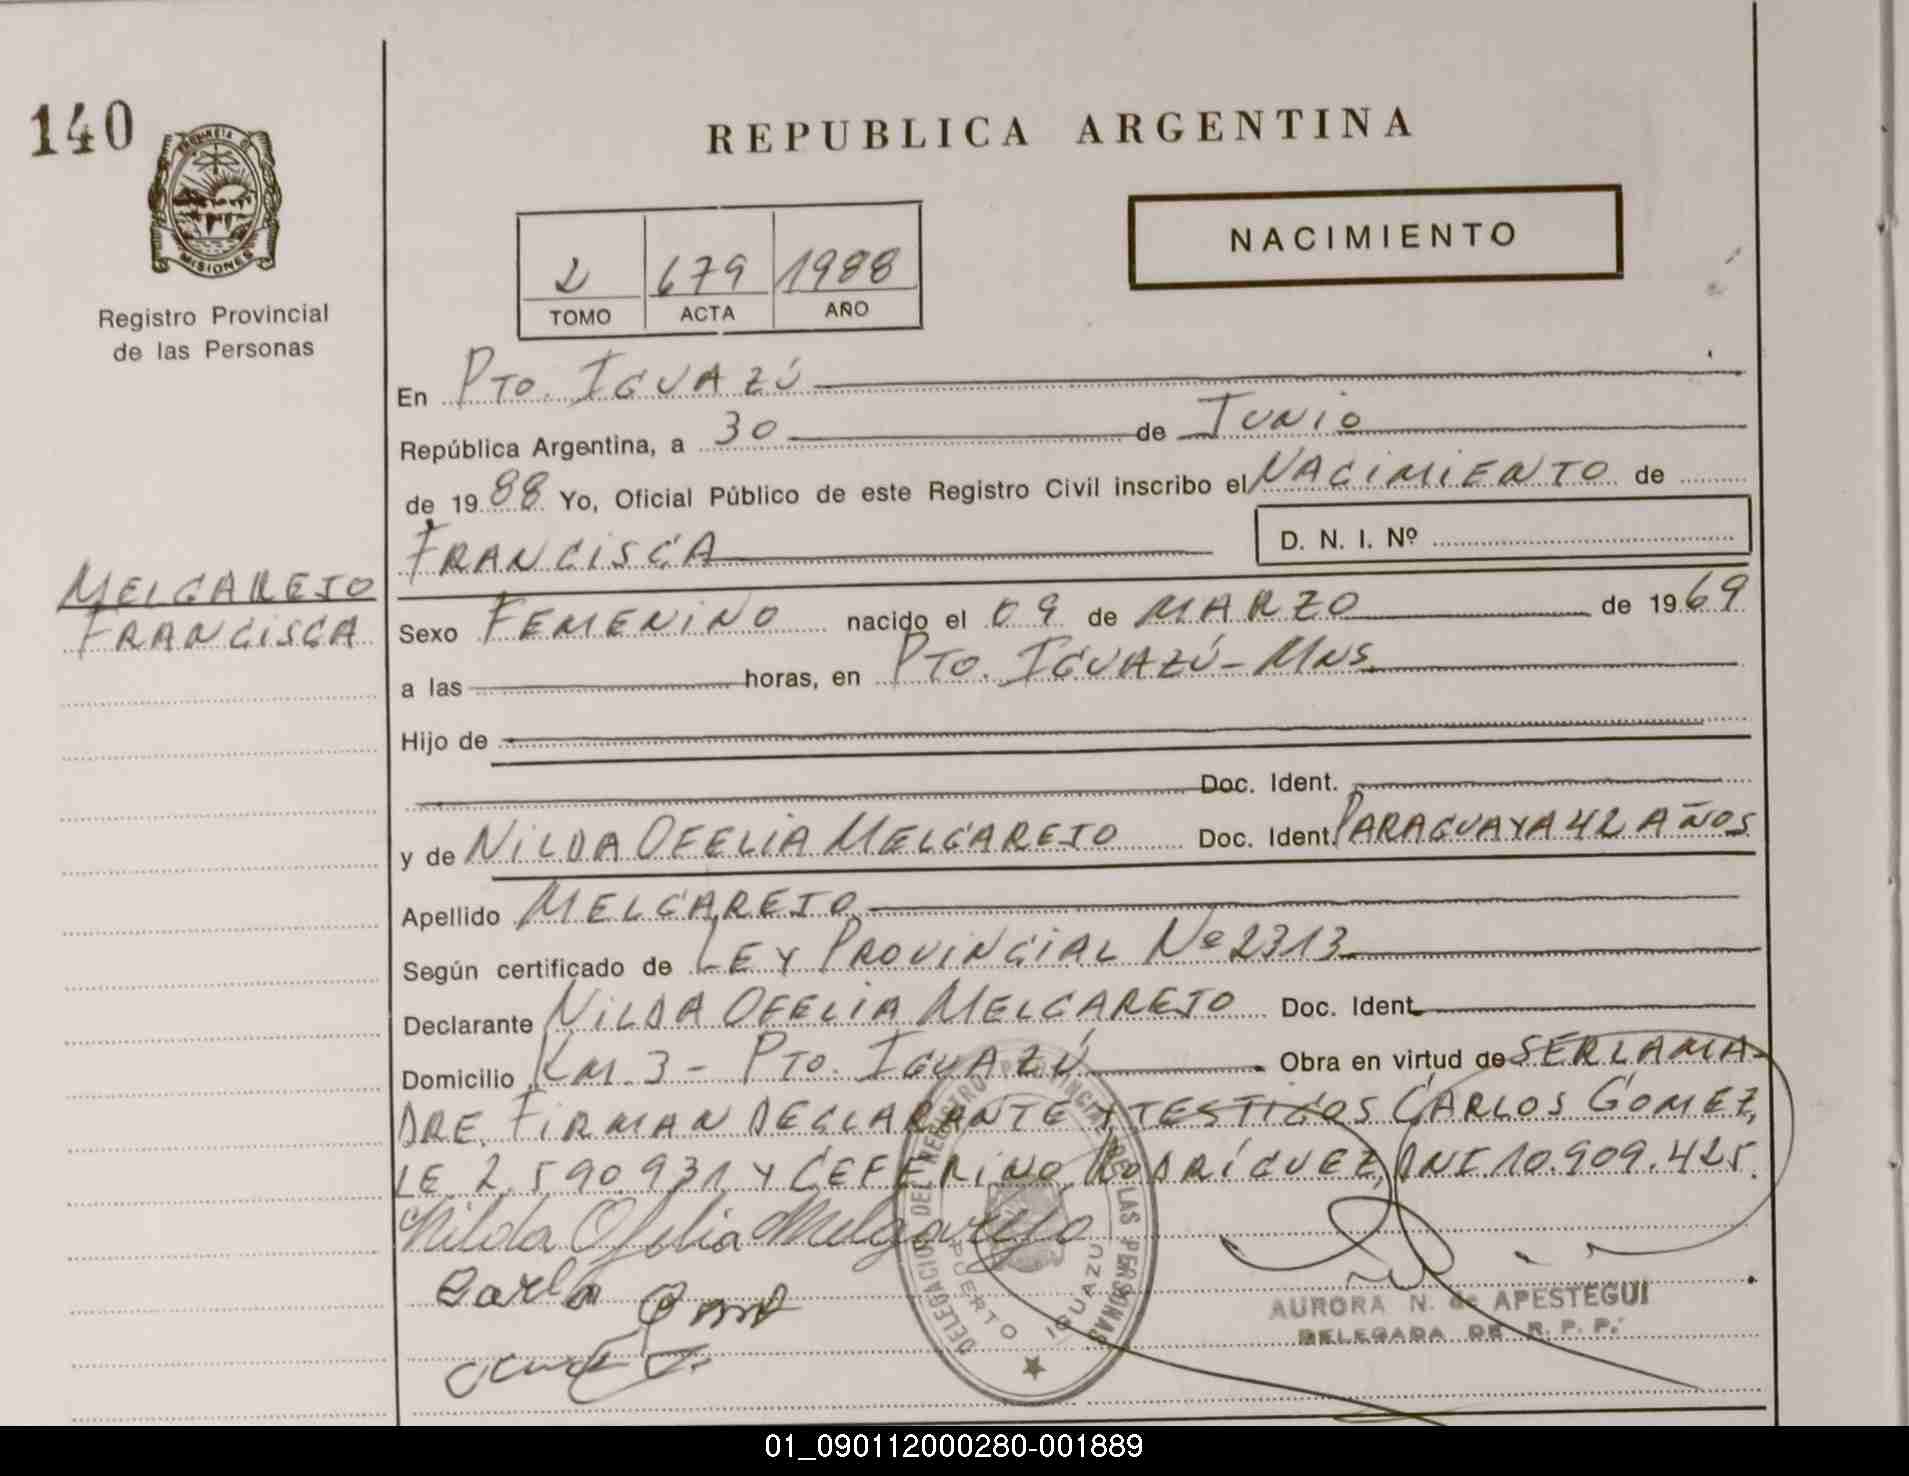 140
PROVINCIA DE
MISIONES
Registro Provincial
de las Personas
REPUBLICA ARGENTINA
NACIMIENTO
2 679 1988
TOMO ACTA AÑO
En PTO. IGUAZÚ
República Argentina, a 30 de JUNIO
de 1988 Yo, Oficial Público de este Registro Civil inscribo el NACIMIENTO de
FRANCISCA D. N. I. Nº
MELGAREJO
FRANCISCA
Sexo FEMENINO nacido el 09 de MARZO de 1969
a las horas, en PTO. IGUAZÚ - MNS.
Hijo de
Doc. Ident.
y de NILDA OFELIA MELGAREJO Doc. Ident. PARAGUAYA 42 AÑOS
Apellido MELGAREJO
Según certificado de LEY PROVINCIAL Nº 2313
Declarante NILDA OFELIA MELGAREJO Doc. Ident.
Domicilio KM. 3 - PTO. IGUAZÚ Obra en virtud de SER LA MA-
DRE. FIRMAN DECLARANTE Y TESTIGOS CARLOS GOMEZ,
LE 2.590.931 Y CEFERINO RODRÍGUEZ, DNI 10.909.425.
Nilda Ofelia Melgarejo
DELEGACION DEL REGISTRO PROVINCIAL DE LAS PERSONAS
PUERTO IGUAZU
AURORA N. de APESTEGUI
DELEGADA DE R. P. P.
01_090112000280-001889